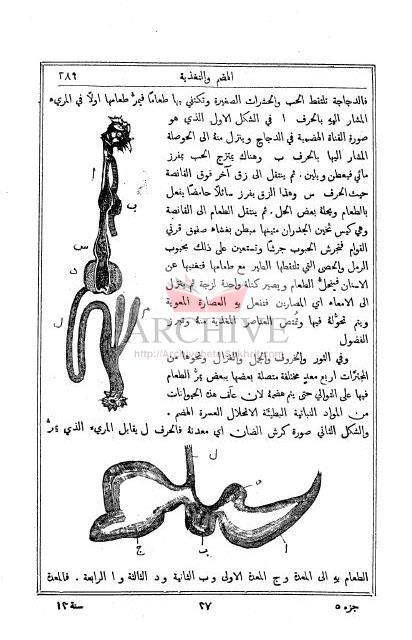 الهضم والتغذية ٢٨٩
فالدجاجة تلتقط الحب والحشرات الصغيرة وتكتفي بها طعامًا فيمرُّ طعامها اولًا في المريء
المشار اليهِ بالحرف ا في الشكل الاول الذي هو
صورة القناة الهضمية في الدجاج وينزل منهُ الى الحوصلة
المشار اليها بالحرف ب وهناك يمتزج الحب بمفرز
مائي فيعطن ويلين. ثم ينتقل الى زق آخر فوق القانصة
حيث الحرف س وهذا الزق يفرز سائلًا حامضًا يفعل
بالطعام ويحلهُ بعض الحل. ثم ينتقل الطعام الى القانصة
وهي كيس ثخين الجدران متينها مبطن بغشاء صفيق قرني
القوام فتجرش الحبوب جرشًا وتستعين على ذلك بحبوب
الرمل والحصى التي تلتقطها الطير مع طعامها فتغنيها عن
الاسنان فينحلُّ الطعام ويصير كتلة واحدة لزجة ثم ينزل
الى الامعاء اي المصارين فتفعل بهِ العصارة المعوية
ويتم تحولهُ فيها وتُمتص العناصر المغذية منهُ وتبرز
الفضول
وفي الثور والخروف والجمل والغزال ونحوها من
المجترَّات اربع معد مختلفة متصلة بعضها ببعض يمرُّ الطعام
فيها على التوالي حتى يتم هضمهُ لان علف هذه الحيوانات
من المواد النباتية البطيئة الانحلال العسرة الهضم.
والشكل الثاني صورة كرش الضان اي معدتهُ فالحرف ل يقابل المريء الذي يمرُّ
ا
ب
س
د
ل
م
ل
ه
ج
ب
ا
الطعام بهِ الى المعدة و ج المعدة الاولى و ب الثانية و د الثالثة و ا الرابعة. فالمعدة
جزء ٥ ٢٧ سنة ١٢
ARCHIVE